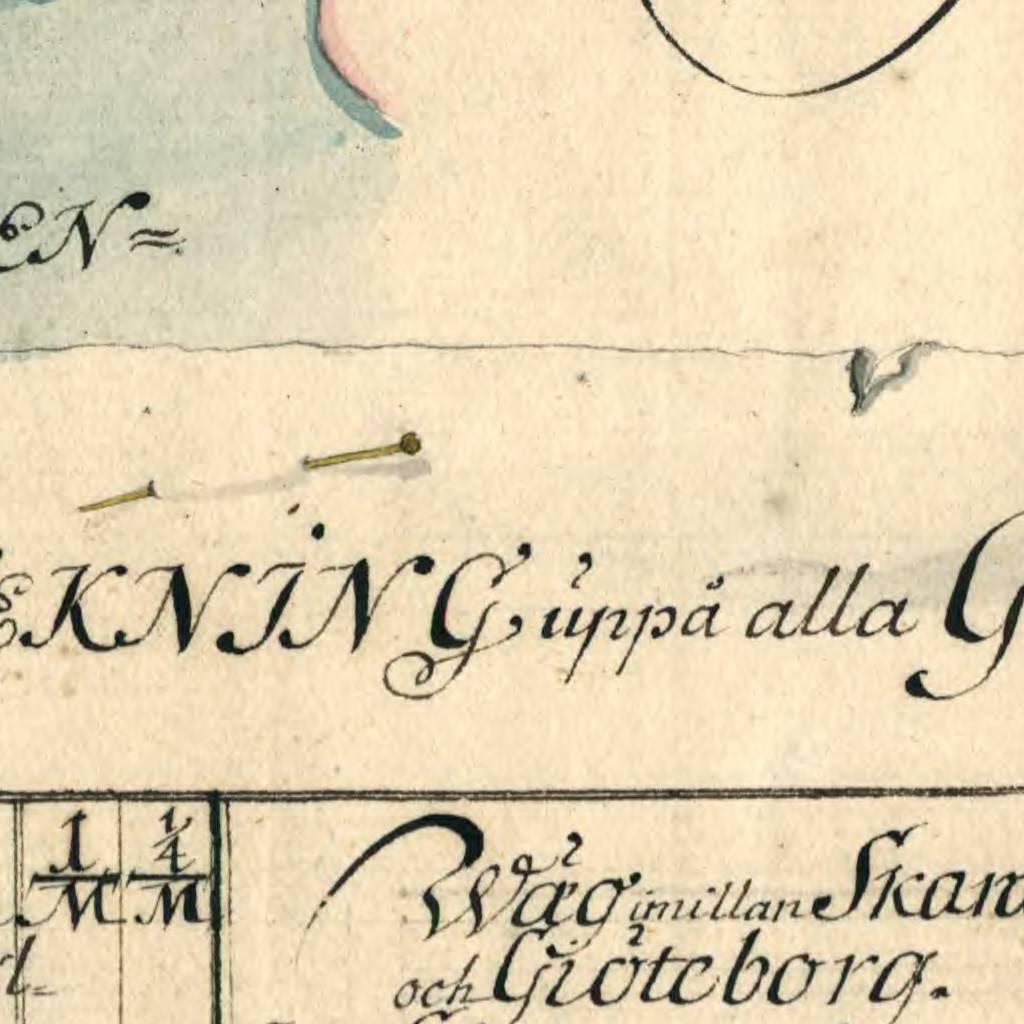 EN=
EKNING, uppå alla G
1/M 1/4/M
Wäg imillan Skan
och Giöteborg.